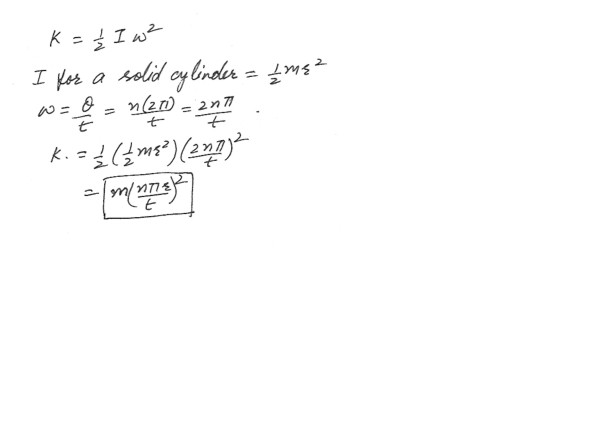 K = ½ I ω²
I for a solid cylinder = ½ m r²
ω = θ/t = n(2π)/t = 2nπ/t .
K. = ½ (½ m r²) (2nπ/t)²
= m(nπr/t)²